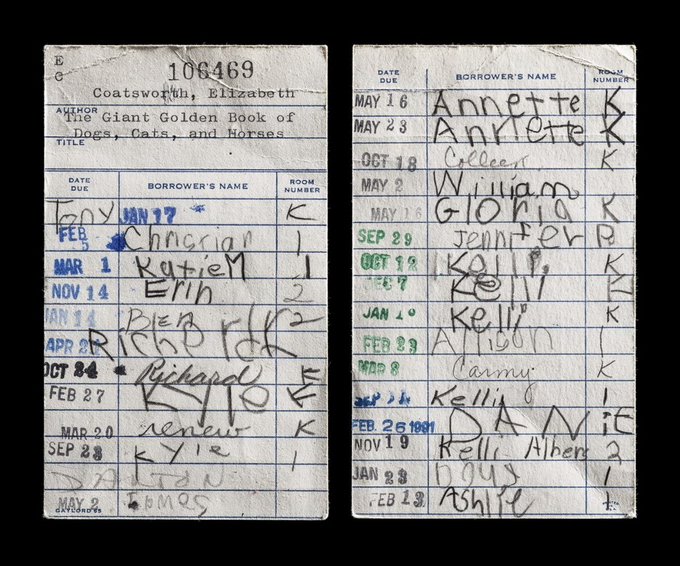 E
C
106469
Coatsworth, Elizabeth
AUTHOR
The Giant Golden Book of
Dogs, Cats, and Horses
TITLE
DATE DUE BORROWER'S NAME ROOM NUMBER
Tony JAN 17 K
FEB 5 Christian 1
MAR 1 Katie M 1
NOV 14 Erin 2
JAN 14 2
APR Richard K
OCT 24 Richard K
FEB 27 Kylie K
MAR 20 renew K
SEP 23 Kylie 1
DALTON
MAY 2 James
GAYLORD 95
DATE DUE BORROWER'S NAME ROOM NUMBER
MAY 16 Annette K
MAY 23 Annette K
OCT 18 Colleen K
MAY 2 William
MAY 16 Gloria K
SEP 29 Jennifer B
OCT 12 Kelli K
7 Kelli K
JAN Kelli K
FEB 23 Allison 1
MAR 8 Carmy K
SEP Kelli 1
FEB. 26 1991 DAN it
NOV 19 Kelli Albers 2
JAN 23 Doug 1
FEB 13 Ashlie 1